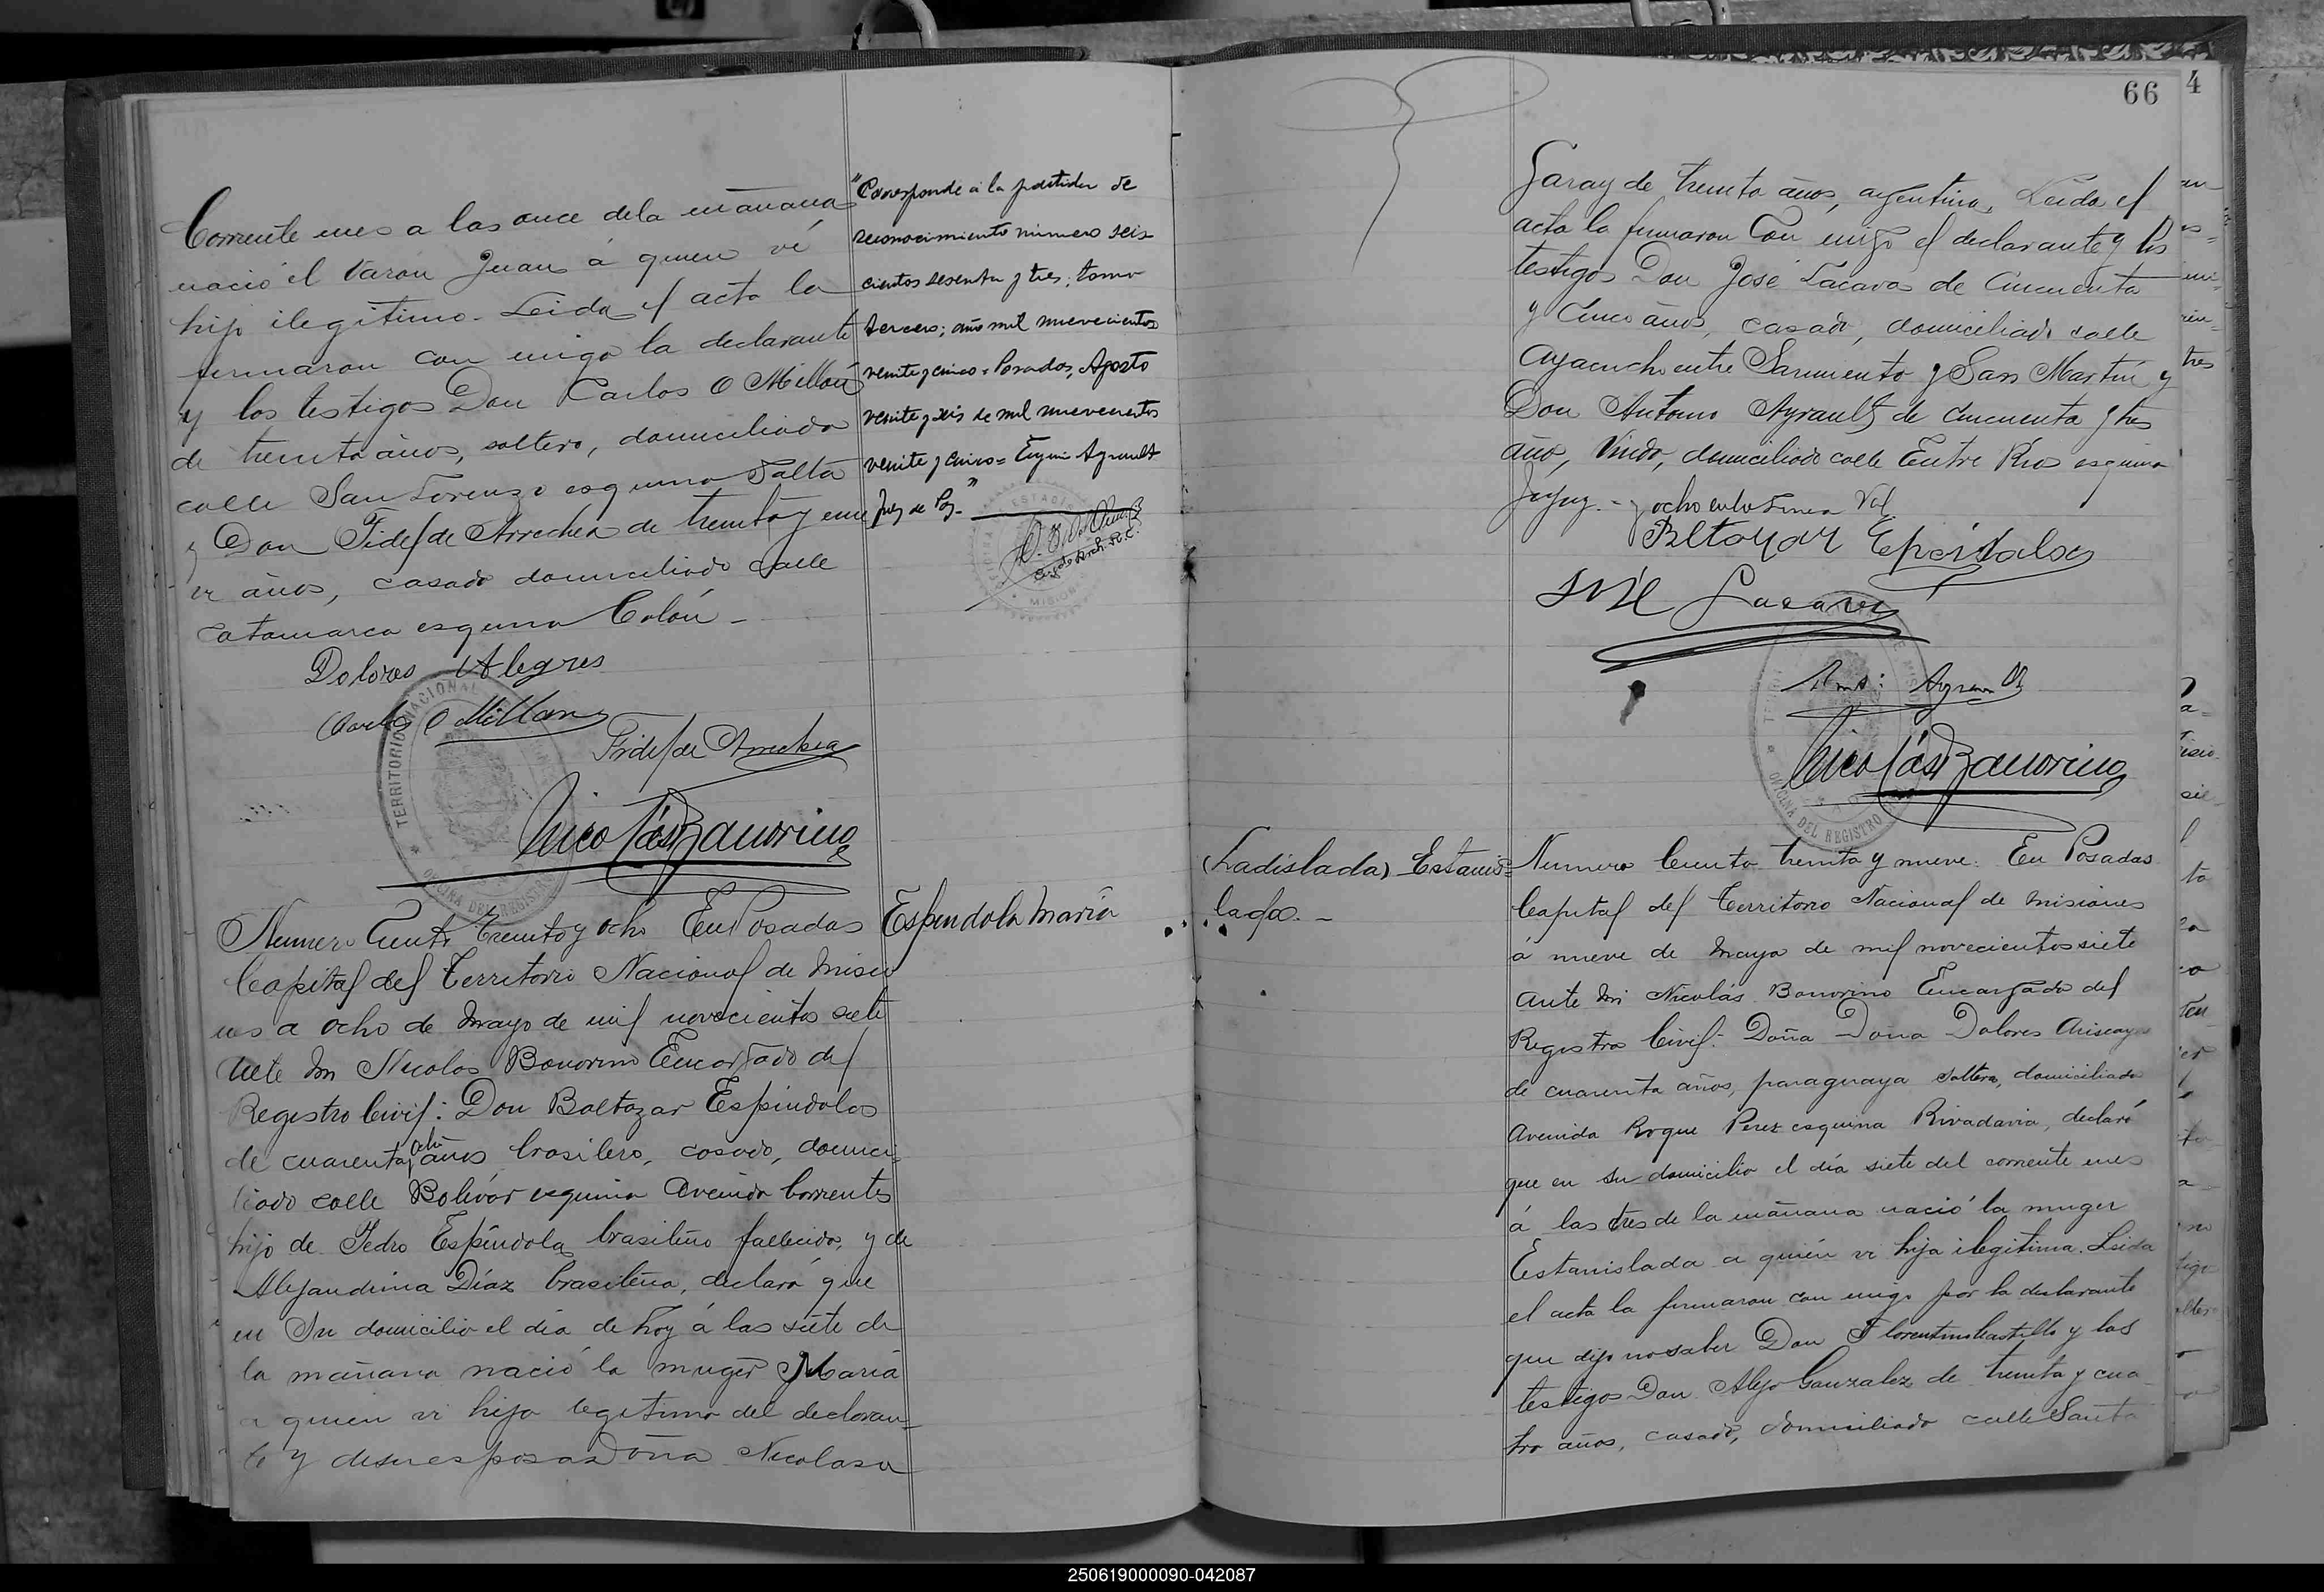 Corriente mes a las once de la mañana
nació el varón Juan á quien ví
hijo ilegítimo. Leida el acta la
firmaron con migo la declarante
y los testigos Don Carlos O Millan
de treinta años, soltero, domiciliado
calle San Lorenzo esquina Salta
y Don Fidel de Arrechea de treinta y nue
ve años, casado domiciliado calle
Catamarca esquina Colón -
Dolores Alegres
Carlos O Millan
Fidel de Arrechea
Nicolás Bonorino
TERRITORIO NACIONAL
OFICINA DEL REGISTRO
"Corresponde á la partida de
reconocimiento número seis
cientos sesenta y tres; tomo
tercero; año mil novecientos
veinte y cinco = Posadas, Agosto
veinte y seis de mil novecientos
veinte y cinco = Ayrault
Juez de Paz."
Numero Ciento Treinta y ocho En Posadas
Capital del Territorio Nacional de Misio
nes a ocho de Mayo de mil novecientos siete
Ante mi Nicolas Bonorino Encargado del
Registro Civil: Don Baltazar Espindola
de cuarenta y ocho años brasilero, casado, domici-
liado calle Bolívar esquina Avenida Corrientes
hijo de Pedro Espíndola brasileño fallecido, y de
Alejandrina Díaz brasileña, declaró que
en Su domicilio el día de hoy á las siete de
la mañana nació la muger María
a quien vi hija legitima del declaran-
te y de su esposa Doña Nicolasa
Espindola María
66
4
Garay de treinta años, argentina. Leida el
acta la firmaron Con migo el declarante y los
testigos Don José Lacava de Cincuenta
y Cinco años, casado, domiciliado calle
Ayacucho entre Sarmiento y San Martín y
Don Antonio Ayrault de cincuenta y tres
año, Viudo, domiciliado calle Entre Rios esquina
Jujuy. - y ocho entre linea Val.
Baltazar Epindola
José Lacava
Ant: Ayrault
Nicolás Bonorino
OFICINA DEL REGISTRO
(Ladislada) Estanis=
lada. -
Numero Ciento treinta y nueve. En Posadas
Capital del Territorio Nacional de Misiones
á nueve de Mayo de mil novecientos siete
Ante Mi Nicolás Bonorino Encargado del
Registro Civil: Doña Dona Dolores
de cuarenta años, paraguaya soltera, domiciliada
Avenida Roque Perez esquina Rivadavia, declaró
que en su domicilio el día siete del corriente mes
á las tres de la mañana nació la muger
Estanislada a quién vi hija ilegitima. Leida
el acta la firmaron con migo por la declarante
que dijo no saber Don Florentino Castillo y los
testigos Don Alejo Gonzalez de treinta y cua
tro años, casado, domiciliado calle Santa
250619000090-042087